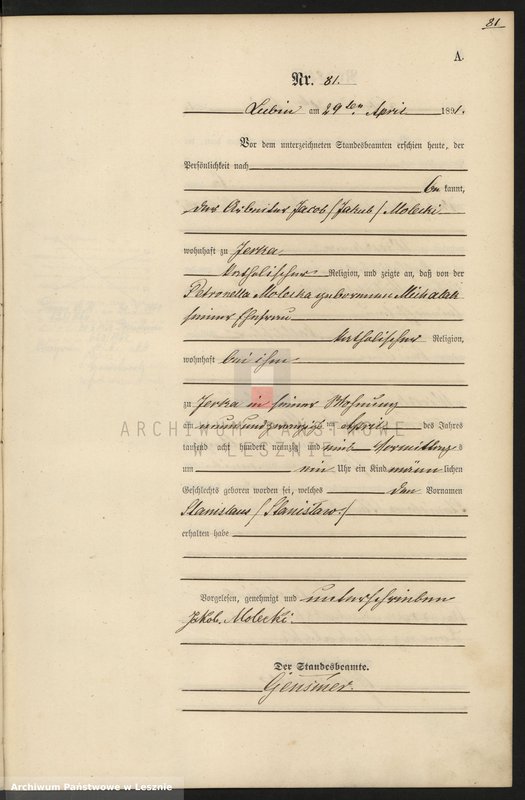 81.
A.
Nr. 81.
Lubin am 29ten April 1891.
Vor dem unterzeichneten Standesbeamten erschien heute, der
Persönlichkeit nach
be kannt,
der Arbeiter Jacob /Jakub/ Molecki
wohnhaft zu Jerka
katholischer Religion, und zeigte an, daß von der
Petronella Molecka geborenen Michalak
seiner Ehefrau
katholischer Religion,
wohnhaft bei ihm
zu Jerka in seiner Wohnung
am neunundzwanzigsten April des Jahres
tausend acht hundert neunzig und eins Vormittags
um ein Uhr ein Kind männlichen
Geschlechts geboren worden sei, welches den Vornamen
Stanislaus /Stanisław/
erhalten habe
Vorgelesen, genehmigt und unterschrieben
Jakob Molecki
Der Standesbeamte.
ARCHIWUM PAŃSTWOWE
LESZNIE
Archiwum Państwowe w Lesznie